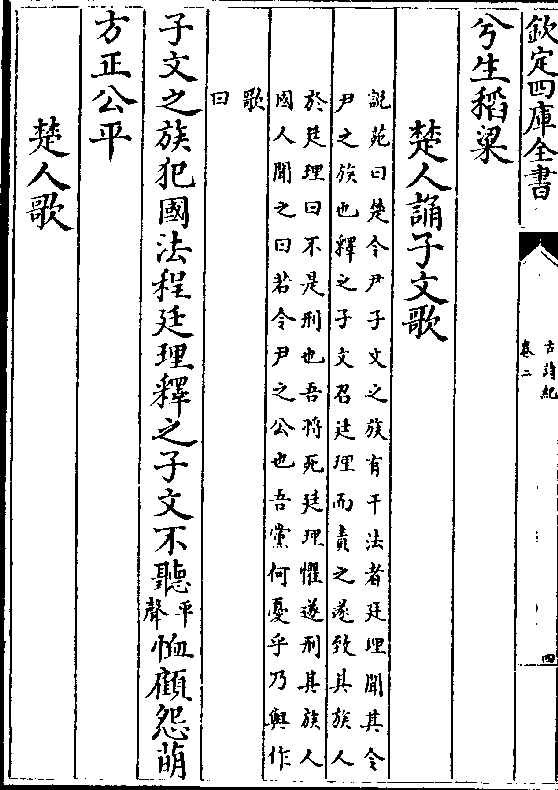 欽定四庫全書
古詩紀
卷二
四
兮生稻粱
楚人誦子文歌
說苑曰楚令尹子文之族有干法者廷理聞其令
尹之族也釋之子文召廷理而責之遂致其族人
於廷理曰不是刑也吾將死廷理懼遂刑其族人
國人聞之曰若令尹之公也吾黨何憂乎乃與作
歌
曰
子文之族犯國法程廷理釋之子文不聽平聲恤顧怨萌
方正公平
楚人歌